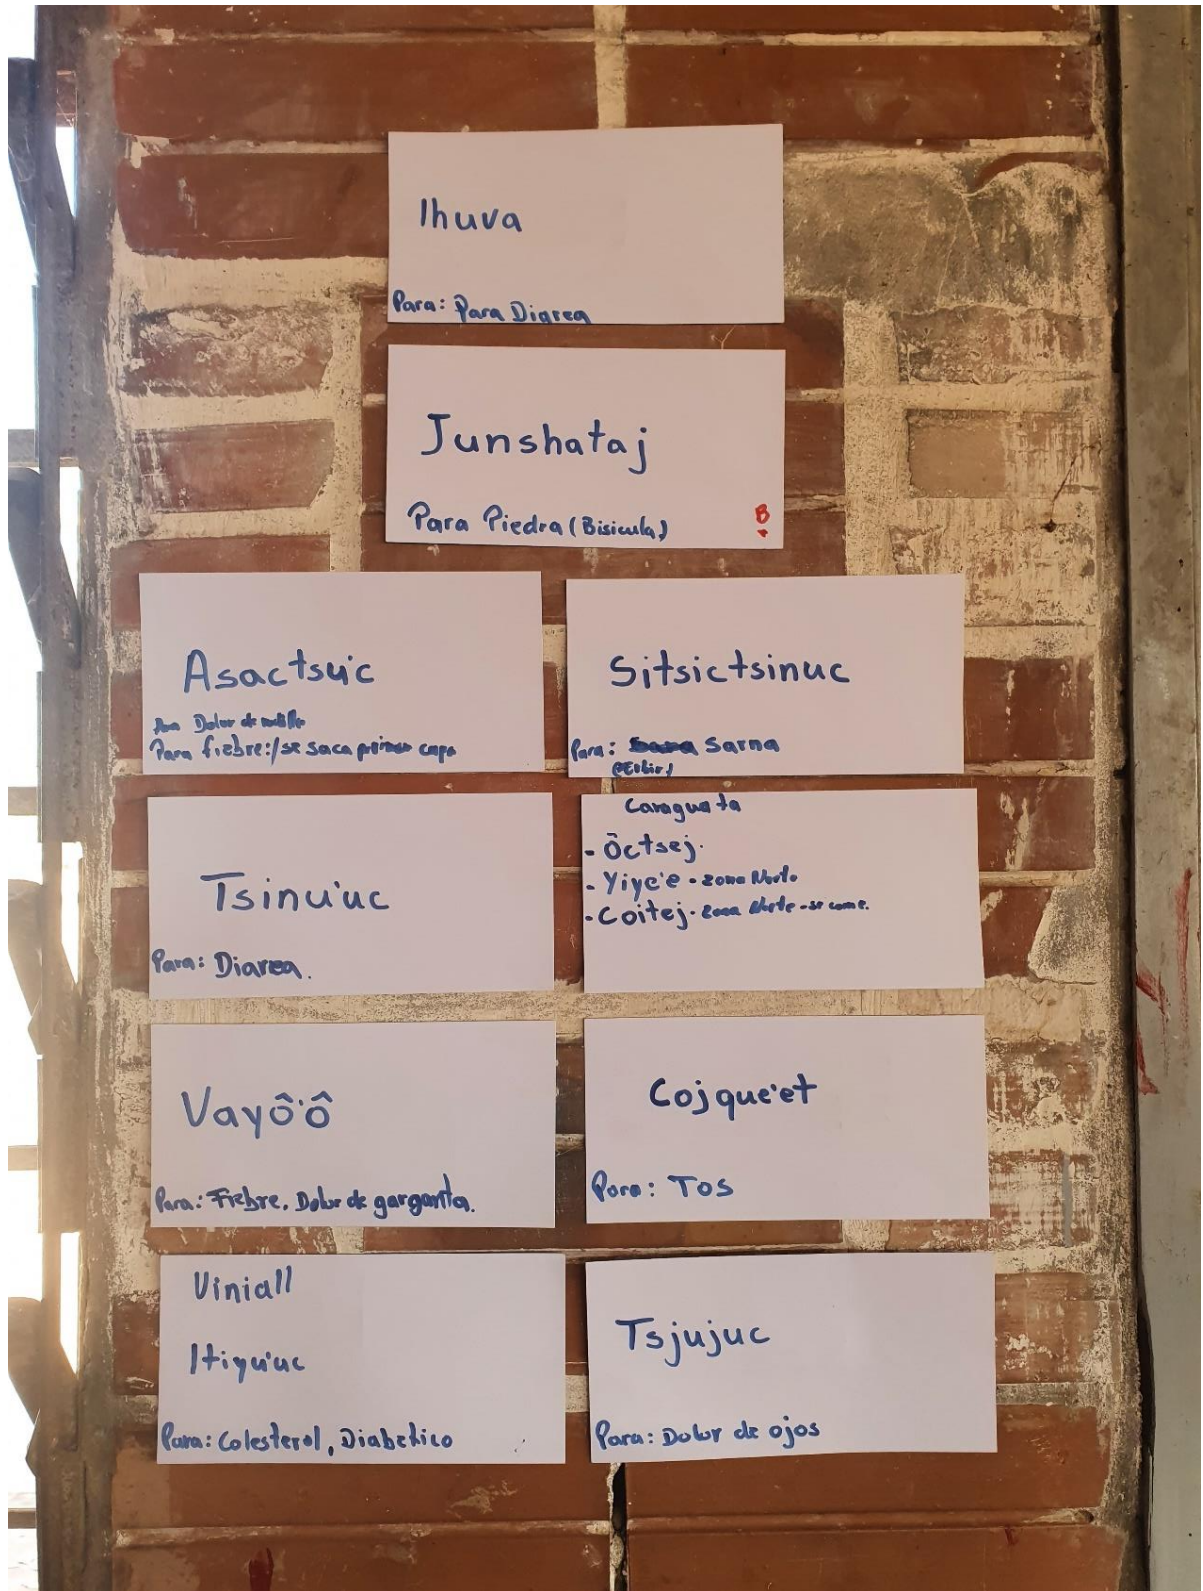 Ihuva
Para: Para Diarea
Junshataj
Para Piedra (Bisicula)
B
Asactsu'c
Para Dolor de
Para fiebre:/se saca primer capa
Sitsictsinuc
Para: Sarna
Caraguata
- Öctsej.
- Yiyc'e - zona Norte
- Coitej - zona Norte - se come.
Tsinu'uc
Para: Diarea.
Vayô'ô
Para: Fiebre. Dolor de garganta.
Cojque'et
Para: Tos
Viniall
Itiyu'uc
Para: Colesterol, Diabetico
Tsjujuc
Para: Dolor de ojos